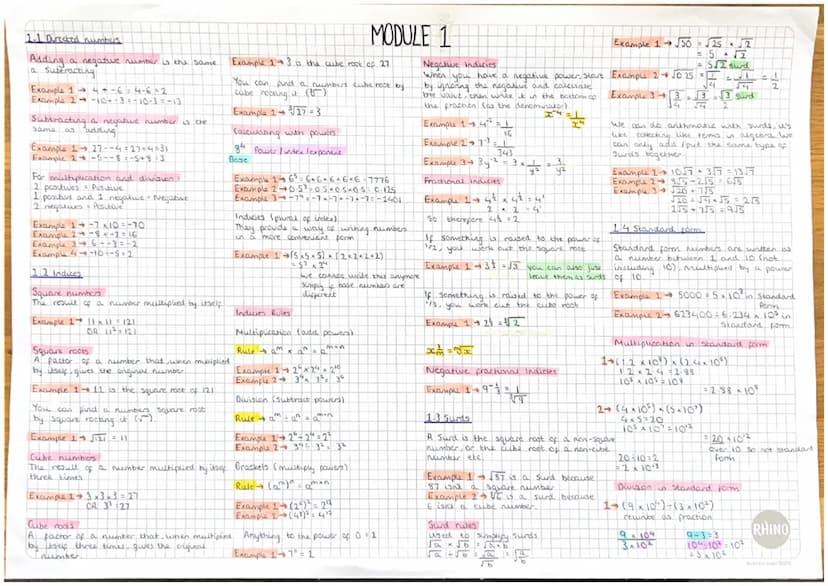 MODULE 1
1.1 Directed numbers
Adding a negative number is the same
as subtracting
Example 1 → 4 + -6 = 4-6 = 2
Example 2 → -10 + -3 = -10-3 = -13
Subtracting a negative number is the
same as "adding"
Example 1 → 27 - -4 = 27+4 = 31
Example 2 → -5 - -8 = -5+8 = 3
For multiplication and division:
2 positives = Positive
1 positive and 1 negative = Negative
2 negatives = Positive
Example 1 → -7 × 10 = -70
Example 2 → -8 × -2 = 16
Example 3 → 6 ÷ -3 = -2
Example 4 → -10 ÷ -5 = 2
1.2 Indices
Square numbers
The result of a number multiplied by itself
Example 1 → 11 × 11 = 121
OR 11² = 121
Square roots
A factor of a number that, when multiplied
by itself, gives the original number
Example 1 → 11 is the square root of 121
You can find a numbers square root
by square rooting it (√)
Example 1 → √121 = 11
Cube numbers
The result of a number multiplied by itself
three times
Example 1 → 3 × 3 × 3 = 27
OR 3³ = 27
Cube roots
A factor of a number that, when multiplied
by itself three times, gives the original
number
Example 1 → 3 is the cube root of 27
You can find a numbers cube root by
cube rooting it (∛)
Example 1 → ∛27 = 3
Calculating with powers
Power/index/exponent
Base
Example 1 → 6⁵ = 6 × 6 × 6 × 6 × 6 = 7776
Example 2 → 0.5³ = 0.5 × 0.5 × 0.5 = 0.125
Example 3 → -7⁴ = -7 × -7 × -7 × -7 = -2401
Indices (plural of index)
They provide a way of writing numbers
in a more convenient form
Example 1 → (5 × 5 × 5) × (2 × 2 × 2 × 2)
= 5³ × 2⁴
we cannot write this anymore
simply if base numbers are
different
Indices Rules
Multiplication (add powers)
Rule → aᵐ × aⁿ = aᵐ⁺ⁿ
Division (Subtract powers)
Rule →
Brackets (multiply powers)
Rule → (aᵐ)ⁿ = aᵐˣⁿ
Anything to the power of 0 = 1
Example 1 → 7⁰ = 1
Negative Indices
When you have a negative power, start
by ignoring the negative and calculate
the value, then write it in the bottom of
the fraction (as the denominator)
x⁻⁴ = 1/x⁴
Example 1 → 4⁻² = 1/16
Example 2 → 7⁻³ = 1/343
Example 3 → 3y⁻² = 3 × 1/y² = 3/y²
Fractional indices
So therefore 4½ = 2
If something is raised to the power of
1/2, you work out the square root
Example 1 → 3½ = √3
you can also just
leave them as surds
If something is raised to the power of
1/3, you work out the cube root
Example 1 → 2⅓ = ∛2
Negative fractional indices
1.3 Surds
A Surd is the square root of a non-square
number, or the cube root of a non-cube
number etc.
Example 1 → √87 is a surd because
87 isnt a square number
Example 2 → ∛6 is a surd because
6 isnt a cube number.
Surd rules
Used to simplify surds
√a × √b = √a×b
√a ÷ √b = √a/√b = √a/b
Example 1 → √50 = √25 × √2
= 5 × √2
= 5√2 surd
Example 2 → √0.25 = √1/4 = √1/√4 = 1/2
Example 3 → √3/4 = √3/√4 = √3/2 surd
We can do arithmetic with surds, it's
like collecting like terms in algebra. We
can only add/sub the same type of
surds together
Example 1 → 10√7 + 3√7 = 13√7
Example 2 → 8√5 - 2√5 = 6√5
Example 3 → √20 + 7√5
√20 = √4 × √5 = 2√5
2√5 + 7√5 = 9√5
1.4 Standard form
Standard form numbers are written as
a number between 1 and 10 (not
including 10), multiplied by a power
of 10
Example 1 → 5000 = 5 × 10³ in Standard
Form
Example 2 → 623400 = 6.234 × 10⁵ in
Standard form
Multiplication in standard form
1.2 × 2.4 = 2.88
= 2.88 × 10⁸
4 × 5 = 20
= 20 × 10¹²
Over 10 so not standard
form
20 = 10 × 2
= 2 × 10¹³
Division in Standard form
1 → (9 × 10⁴) ÷ (3 × 10²)
rewrite as fraction
9 × 10⁴
3 × 10²
9 ÷ 3 = 3
10⁴ ÷ 10² = 10²
= 3 × 10²
RHINO